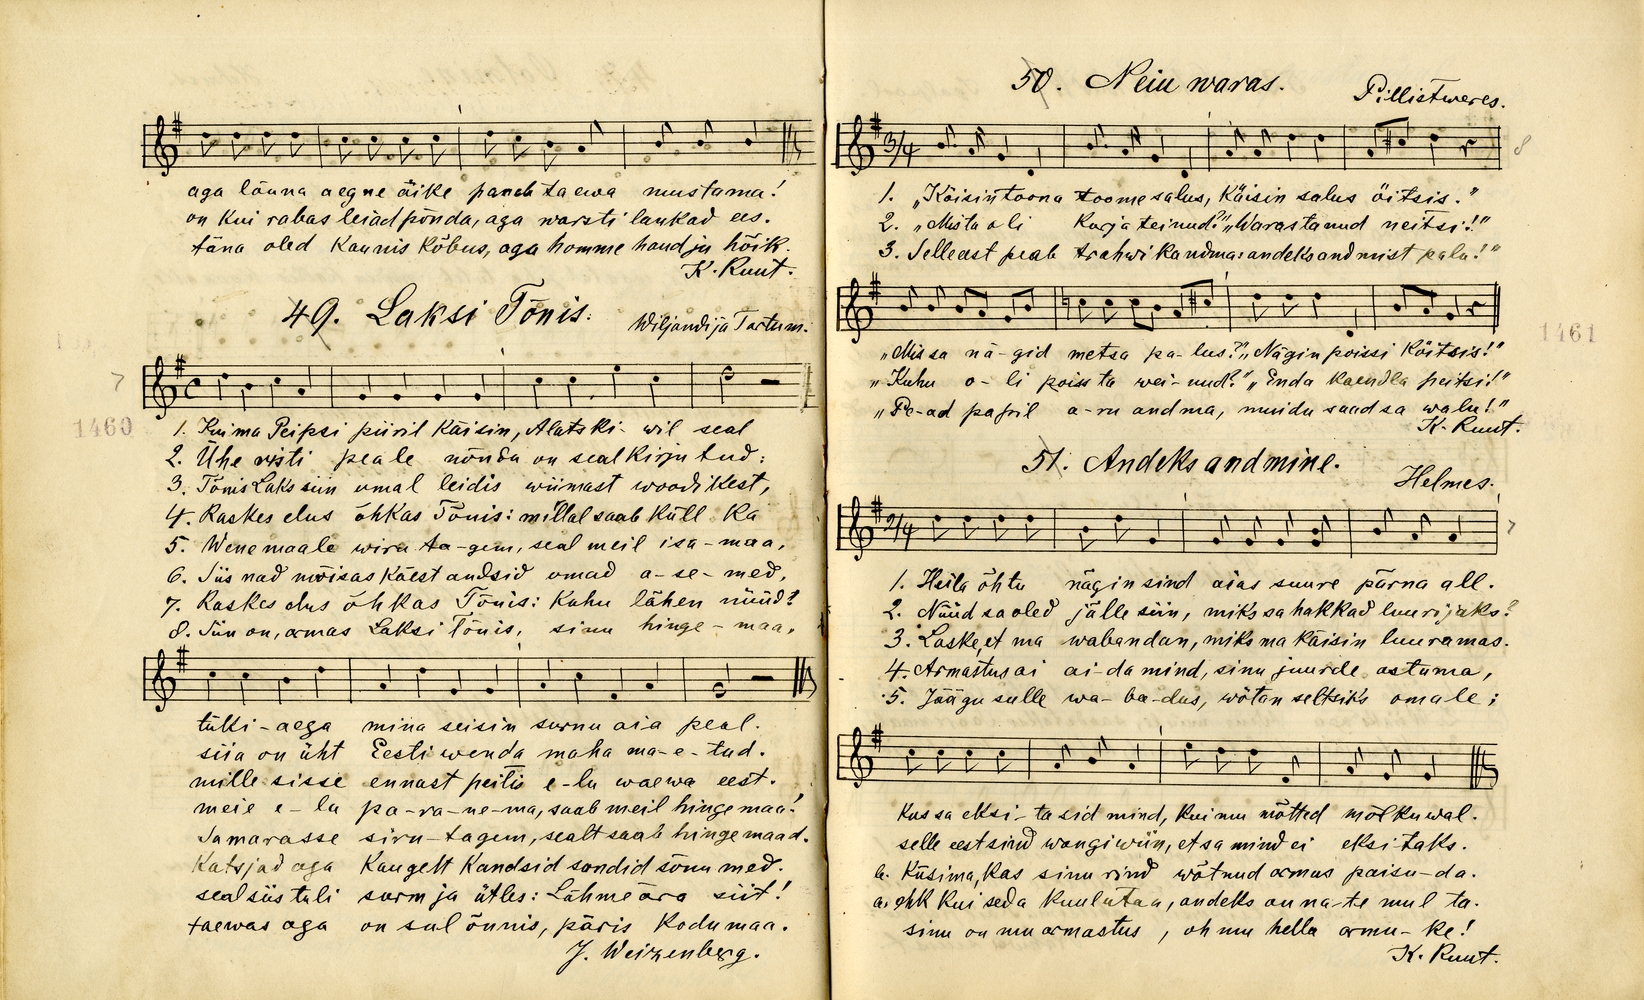 aga lõuna aegne äike paneb taewa mustama!
on kui rabas leiad põnda, aga warsti laukad ees.
täna oled kaunis kõbus, aga homme haud ju hõik.
K. Ruut.
49. Laksi Tõnis.
Wiljandi ja Tartum.
7
1460
1. Kui ma Peipsi piiril käisin, Alatski- wil seal
2. Ühe risti peale nõnda on seal kirju tud:
3. Tõnis Laks siin omal leidis wiimast woodikest,
4. Raskes elus õhkas Tõnis: millal saab küll ka
5. Wenemaale wiru ta-gem, seal meil isa-maa,
6. Siis nad mõisas käest andsid omad a-se-med,
7. Raskes elus õhkas Tõnis: Kuhu lähen nüüd?
8. Siin on, armas Laksi Tõnis, sinu hinge-maa,
tüki-aega mina seisin surnu aia peal.
siia on üht Eesti wenda maha ma-e-tud.
mille sisse ennast peitis e-lu waewa eest.
meie e-lu pa-ra-ne-ma, saab meil hinge maa!
Samarasse siru-tagem, sealt saab hinge maad.
Katsjad aga kaugelt kandsid sandid sõnu med.
seal siis tuli surm ja ütles: Lähme ära siit!
taewas aga on sul õnnis, päris kodumaa.
J. Weizenberg.
50. Neiu waras.
Pillistweres.
8
1. „Käisin toona toome salus, Käisin salus õitsis."
2. „Mis ta oli kurja teinud?" „Warastanud neitsi!"
3. Selle eest peab trahwi kandma: andeks andmist palu!"
1461
„Mis sa nä-gid metsa pa-lus?" „Nägin poissi köitsis!"
„Kuhu o-li poiss ta wei-nud?" „Enda kaendla peitsi!"
„Pe-ad pasril a-ru andma, muidu saad sa walu!"
K. Ruut.
51. Andeks andmine.
Helmes.
7
1. Heila õhtu nägin sind aias suure pärna all.
2. Nüüd sa oled jälle siin, miks sa hakkad luurijaks?
3. Laske, et ma wabandan, miks ma käisin luuramas.
4. Armastus ai ai-da mind, sinu juurde astuma,
5. Jäägu sulle wa-ba-dus, wõtan seltsiks omale;
kus sa eksi-tasid mind, kui mu mõtted mõlkuwal.
selle eest sind wangi wiin, et sa mind ei eksitaks.
b. Küsima, kas sinu rind wõtnud armus paisu-da.
a. ehk kui seda kuulutaa, andeks an na-te mul ta.
sinu on mu armastus, oh mu hella armu-ke!
K. Ruut.